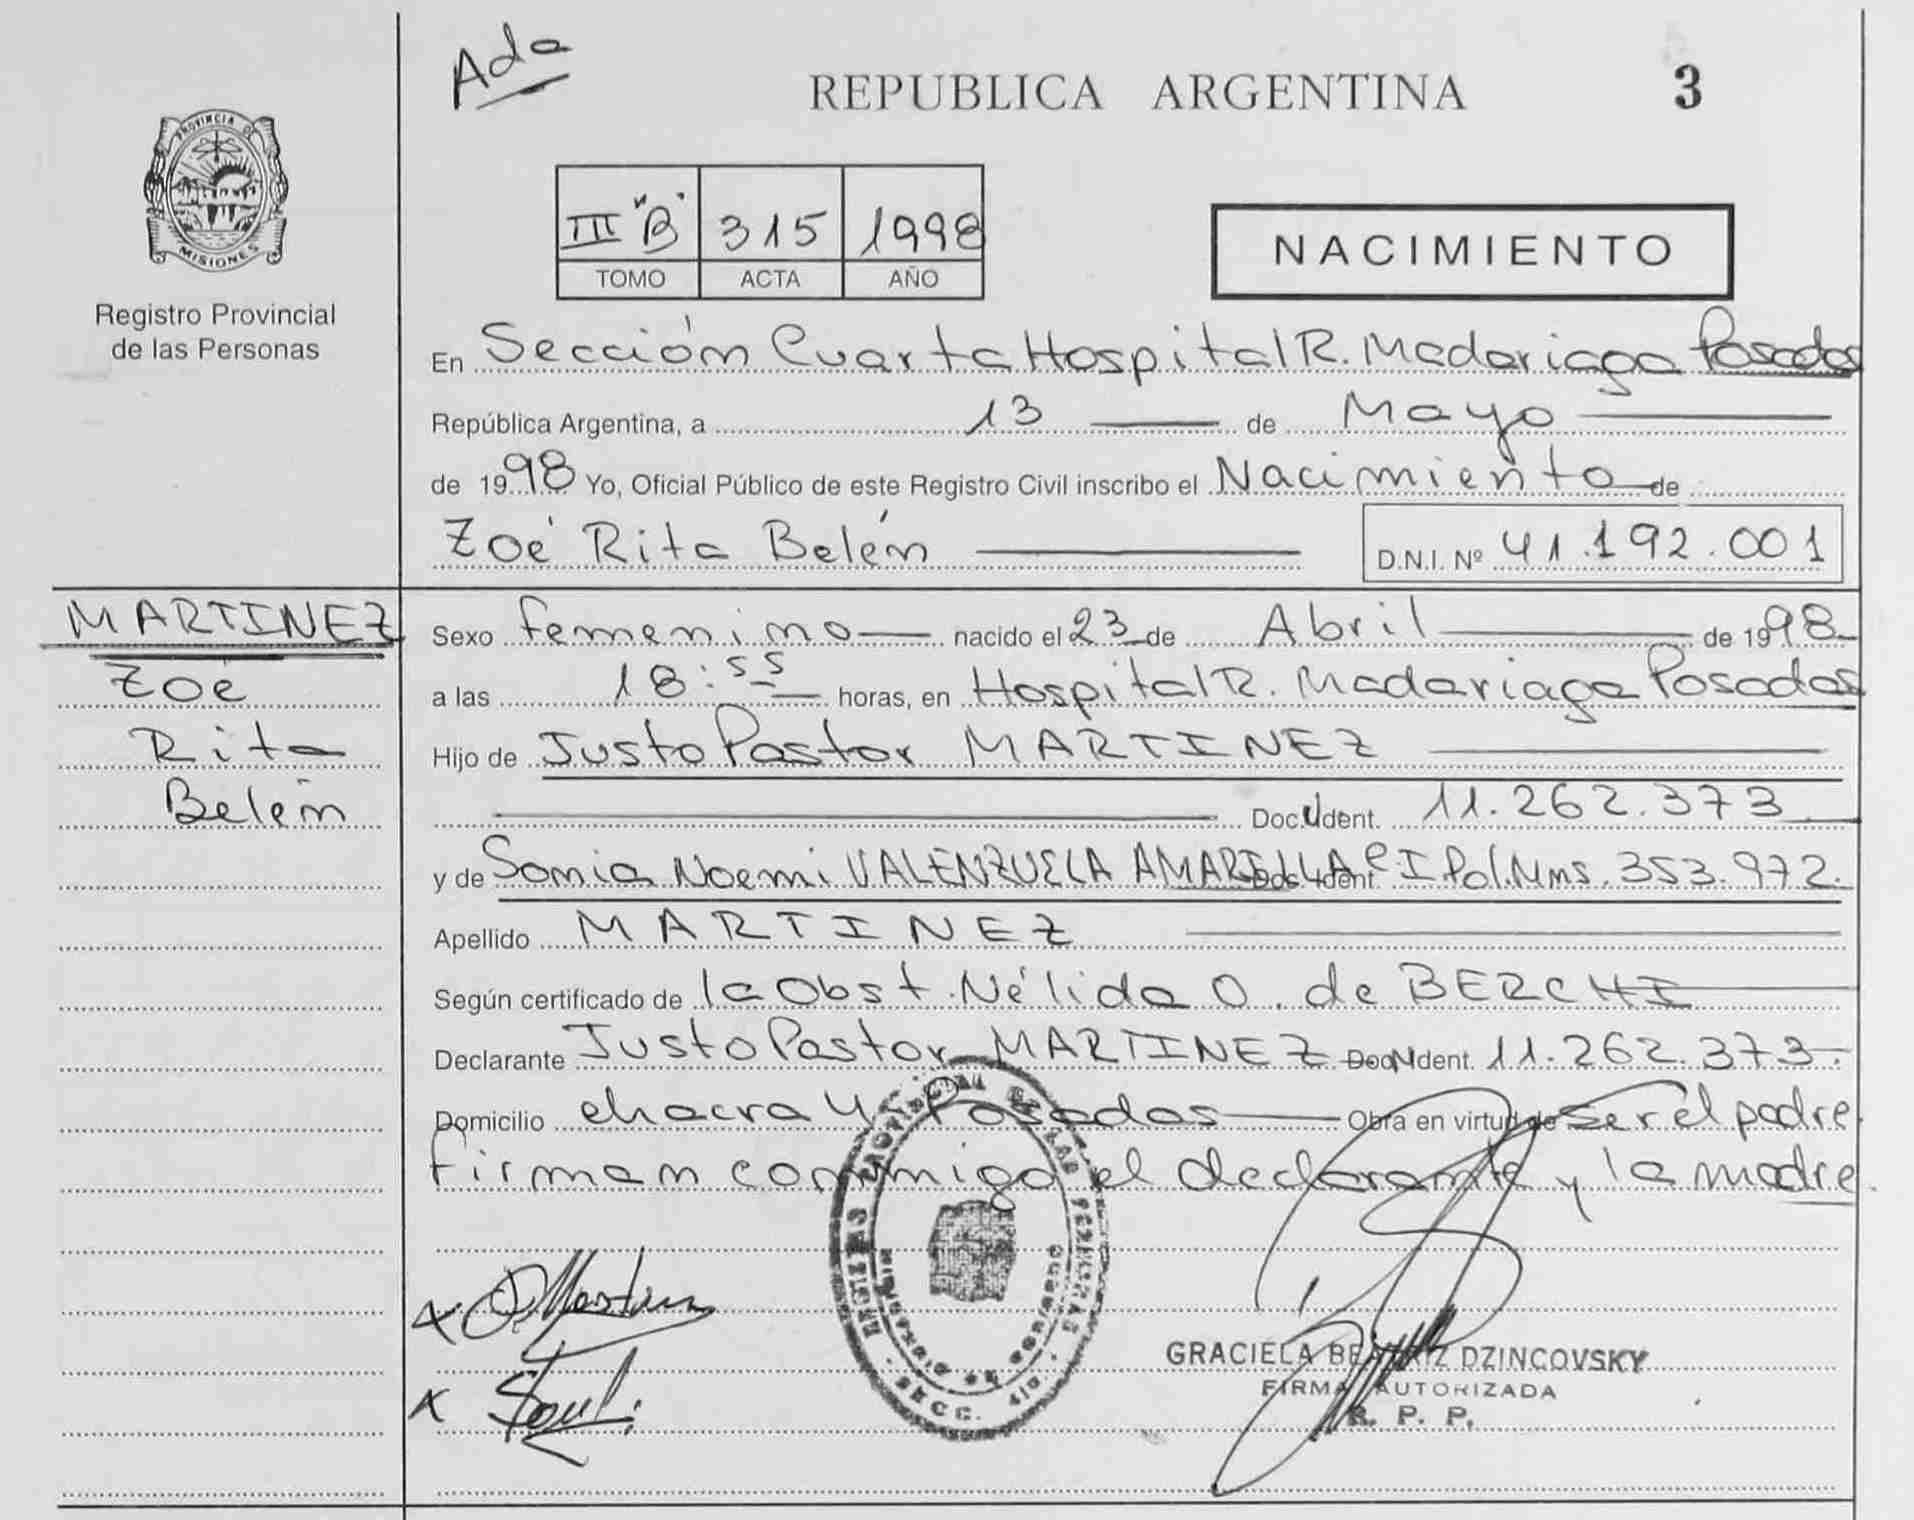 Ada
REPUBLICA ARGENTINA 3
PROVINCIA DE
MISIONES
Registro Provincial
de las Personas
III "B" 315 1998
TOMO ACTA AÑO
NACIMIENTO
En Sección Cuarta Hospital R. Madariaga Posadas
República Argentina, a 13 de Mayo
de 1998 Yo, Oficial Público de este Registro Civil inscribo el Nacimiento de
Zoé Rita Belén D.N.I. Nº 41.192.001
MARTINEZ
Zoé
Rita
Belén
Sexo femenino nacido el 23 de Abril de 1998
a las 18:55 horas, en Hospital R. Madariaga Posadas
Hijo de Justo Pastor MARTINEZ
Doc. Ident. 11.262.373
y de Sonia Noemi VALENZUELA AMARILLA C I Pol. Mns. 353.972.
Apellido MARTINEZ
Según certificado de la Obst. Nélida O. de BERCHI
Declarante Justo Pastor MARTINEZ Doc. Ident. 11.262.373.
Domicilio chacra 4 Posadas Obra en virtud de ser el padre.
Firman conmigo el declarante y la madre.
REGISTRO PROVINCIAL DE LAS PERSONAS
SECC. 4ta.
GRACIELA BEATRIZ DZINCOVSKY
FIRMA AUTORIZADA
R. P. P.